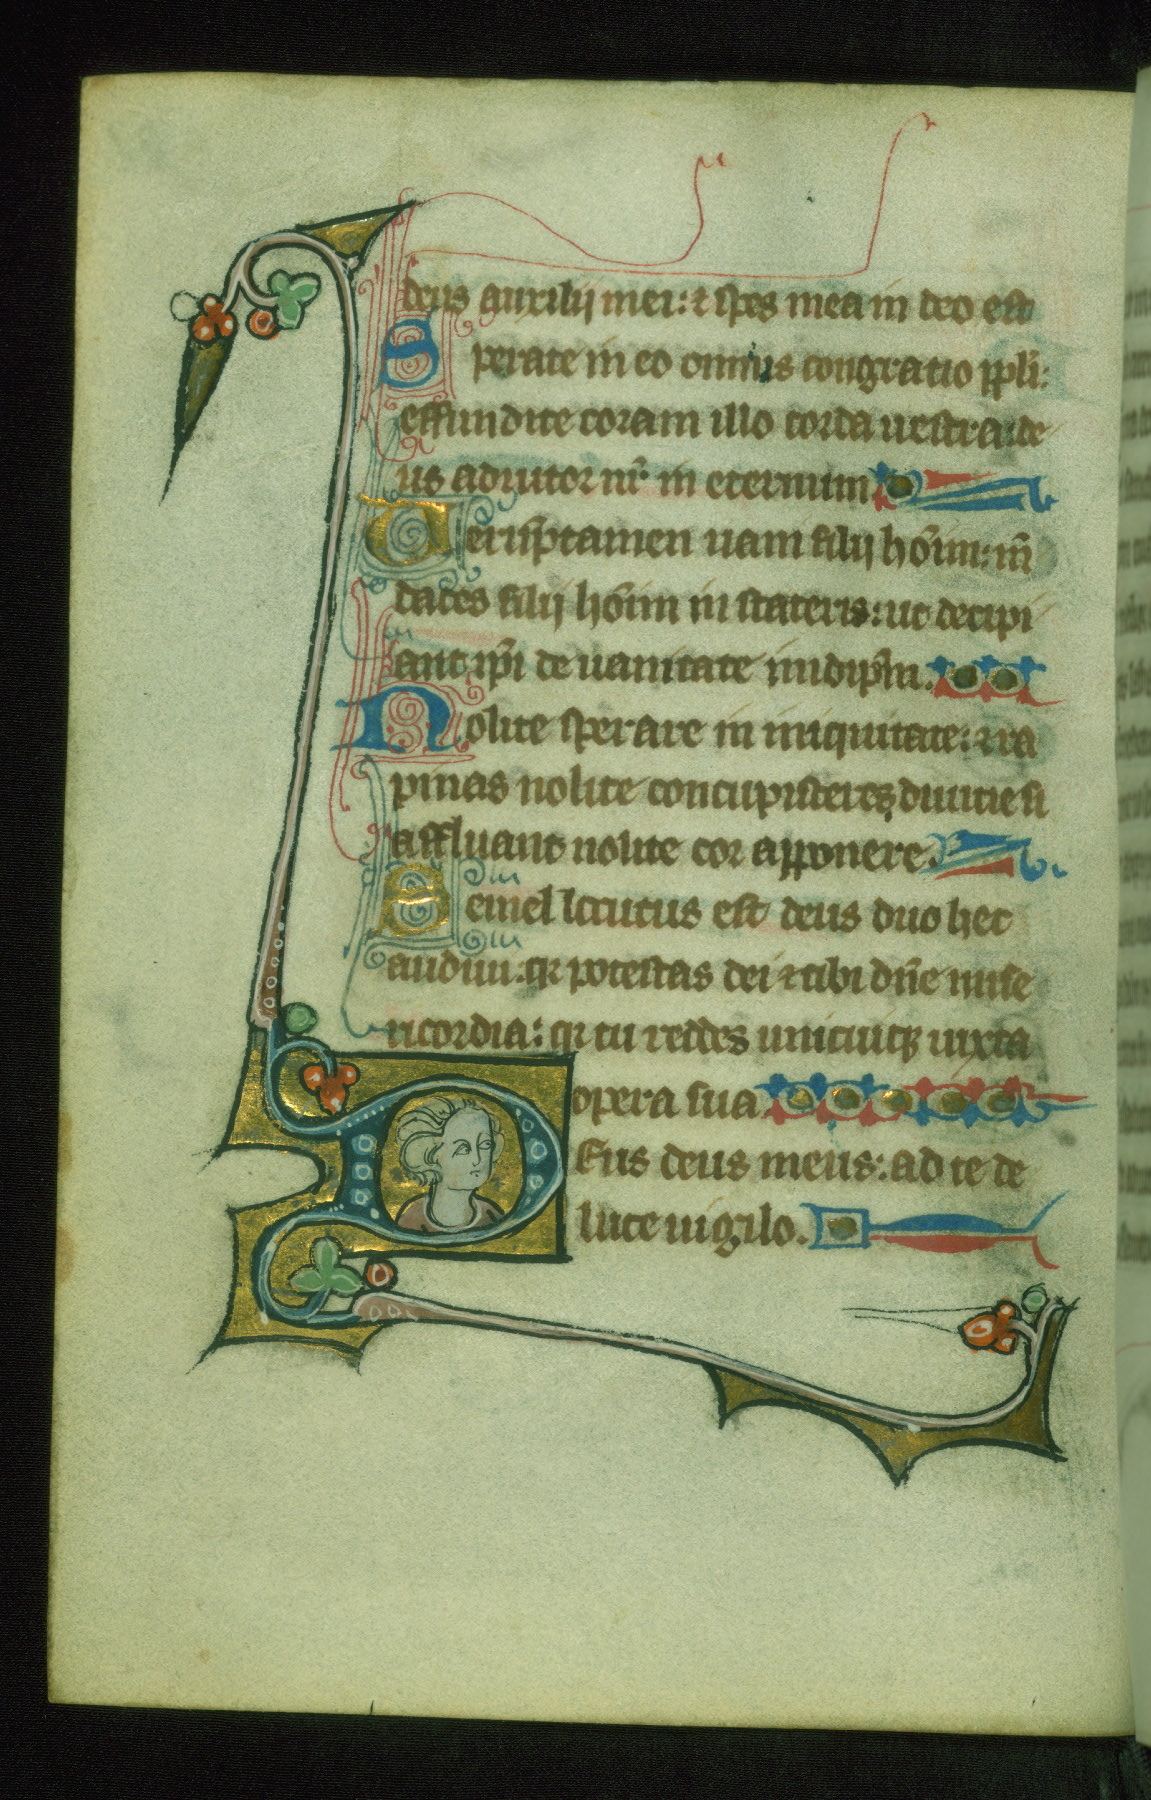 deus auxilij mei: et spes mea in deo est
Sperate in eo omnis congratio ppli:
effundite coram illo corda uestra: de
us adiutor nr in eternum
Veruptamen uani filij hoim: m̄
daces filij hoim in stateris: ut decipi
ant ipi de uanitate in idipm.
Nolite sperare in iniquitate: et ra
pinas nolite concupiscere diuicie si
affluant nolite cor apponere.
Semel locutus est deus duo hec
audiui: qr potestas dei et tibi dn̄e mise
ricordia: qr tu reddes unicuiq; iuxta
opera sua.
DEus deus meus: ad te de
luce uigilo.